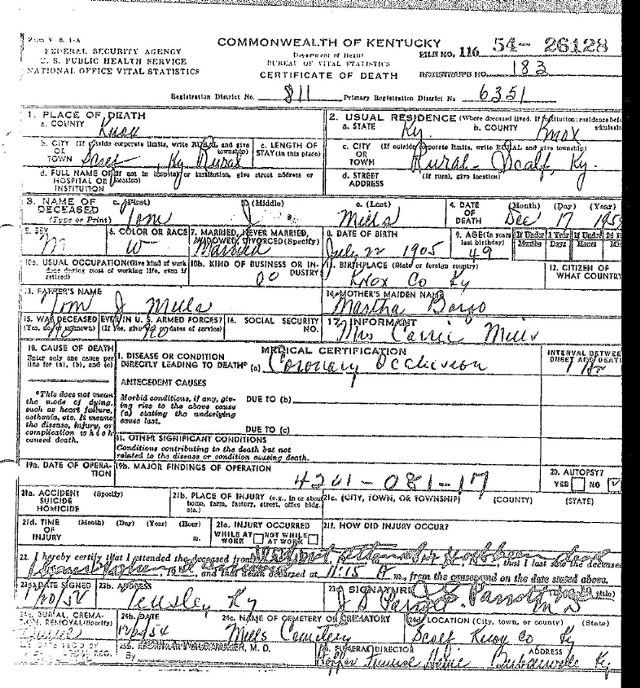 FEDERAL SECURITY AGENCY
U. S. PUBLIC HEALTH SERVICE
NATIONAL OFFICE VITAL STATISTICS
COMMONWEALTH OF KENTUCKY
Department of Health
BUREAU OF VITAL STATISTICS
CERTIFICATE OF DEATH
FILE NO. 116 54-26128
REGISTRAR'S NO. 183
Registration District No. 811 Primary Registration District No 6351
1. PLACE OF DEATH
a. COUNTY Knox
2. USUAL RESIDENCE (Where deceased lived. If institution: residence before
a. STATE Ky b. COUNTY Knox
b. CITY (If outside corporate limits, write RURAL and give township)
OR TOWN Scalf, Ky Rural
c. LENGTH OF STAY (in this place)
c. CITY (If outside corporate limits, write RURAL and give township)
OR TOWN Rural - Scalf, Ky.
d. FULL NAME OF (If not in hospital or institution, give street address or location)
HOSPITAL OR INSTITUTION
d. STREET ADDRESS (If rural, give location)
3. NAME OF DECEASED (Type or Print)
a. (First) Tom b. (Middle) J c. (Last) Mills
4. DATE OF DEATH (Month) (Day) (Year) Dec 17 195
5. SEX M
6. COLOR OR RACE W
7. MARRIED, NEVER MARRIED, WIDOWED, DIVORCED (Specify) Married
8. DATE OF BIRTH July 22 1905
9. AGE (In years last birthday) 49
If Under 1 Year Months Days Hours
10a. USUAL OCCUPATION (Give kind of work done during most of working life, even if retired)
10b. KIND OF BUSINESS OR INDUSTRY 00
11. BIRTHPLACE (State or foreign country) Knox Co Ky
12. CITIZEN OF WHAT COUNTRY
13. FATHER'S NAME Tom J Mills
14. MOTHER'S MAIDEN NAME Martha Bargo
15. WAS DECEASED EVER IN U. S. ARMED FORCES?
(Yes, no or unknown) (If yes, give war or dates of service) No
16. SOCIAL SECURITY NO.
17. INFORMANT Mrs Carrie Mills
18. CAUSE OF DEATH
Enter only one cause per line for (a), (b), and (c)
MEDICAL CERTIFICATION
I. DISEASE OR CONDITION DIRECTLY LEADING TO DEATH* (a) Coronary Occlusion
INTERVAL BETWEEN ONSET AND DEATH
*This does not mean the mode of dying, such as heart failure, asthenia, etc. It means the disease, injury, or complication which caused death.
ANTECEDENT CAUSES
Morbid conditions, if any, giving rise to the above cause (a) stating the underlying cause last.
DUE TO (b)
DUE TO (c)
II. OTHER SIGNIFICANT CONDITIONS
Conditions contributing to the death but not related to the disease or condition causing death.
19a. DATE OF OPERATION
19b. MAJOR FINDINGS OF OPERATION
4201-081-17
20. AUTOPSY?
YES NO
21a. ACCIDENT SUICIDE HOMICIDE (Specify)
21b. PLACE OF INJURY (e.g., in or about home, farm, factory, street, office bldg. etc.)
21c. (CITY, TOWN, OR TOWNSHIP) (COUNTY) (STATE)
21d. TIME OF INJURY (Month) (Day) (Year) (Hour) m.
21e. INJURY OCCURRED
WHILE AT WORK NOT WHILE AT WORK
21f. HOW DID INJURY OCCUR?
22. I hereby certify that I attended the deceased from that I last saw the deceased
and that death occurred at 11:15 A m., from the causes and on the date stated above.
23a. DATE SIGNED
23b. ADDRESS Ky
23c. SIGNATURE
24a. BURIAL, CREMATION, REMOVAL (Specify)
24b. DATE
24c. NAME OF CEMETERY OR CREMATORY Mills Cemetery
24d. LOCATION (City, town, or county) (State) Scalf Knox Co Ky
25. FUNERAL DIRECTOR ADDRESS
Hopper Funeral Home Barbourville Ky